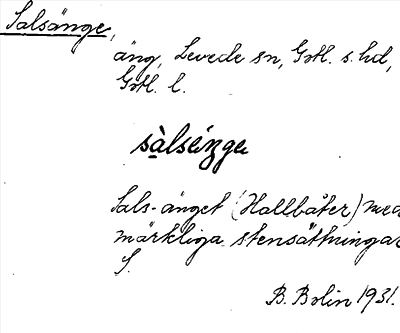 Salsänge,
äng, Levede sn, Gotl. s. hd,
Gotl. l.
sàlsénge
Sals-änget (Hallbåter) med
märkliga stensättningar
S.
B. Bolin 1931.